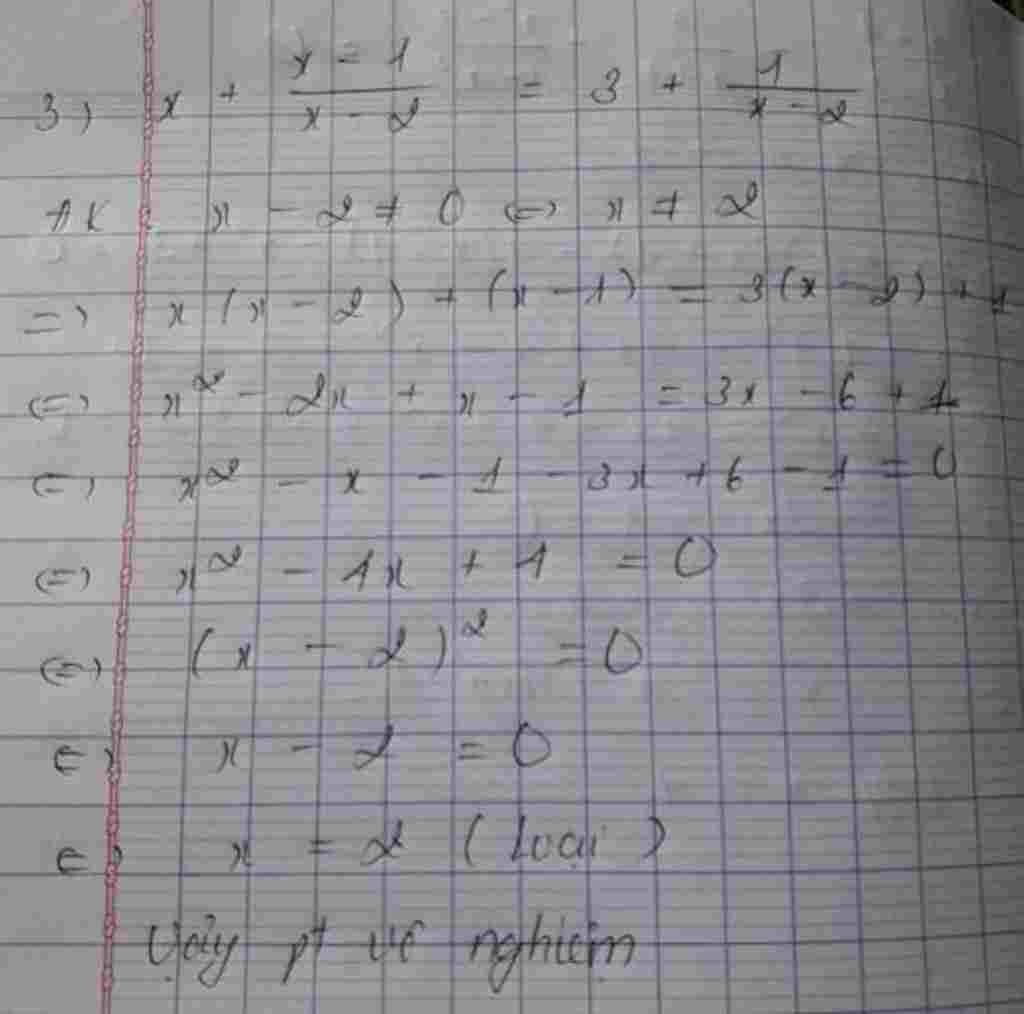 3) x + (x - 1)/(x - 2) = 3 + 1/(x - 2)
ĐK: x - 2 ≠ 0 <=> x ≠ 2
=> x(x - 2) + (x - 1) = 3(x - 2) + 1
<=> x² - 2x + x - 1 = 3x - 6 + 1
<=> x² - x - 1 - 3x + 6 - 1 = 0
<=> x² - 4x + 4 = 0
<=> (x - 2)² = 0
<=> x - 2 = 0
<=> x = 2 (Loại)
Vậy pt vô nghiệm